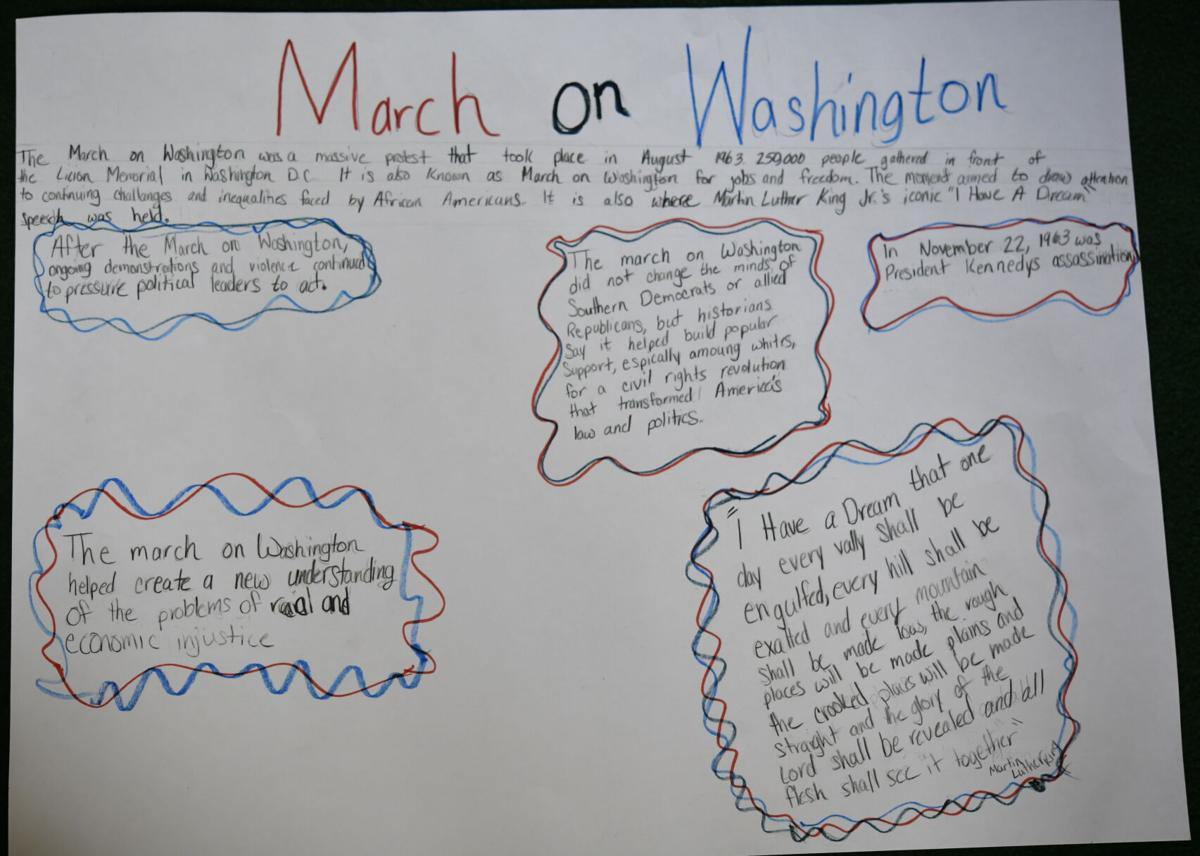 March on Washington
The March on Washington was a massive protest that took place in August 1963. 250,000 people gathered in front of
the Licion Memorial in Washington D.C. It is also known as March on Washington for jobs and freedom. The moment aimed to draw attention
to continuing challenges and inequalities faced by African Americans. It is also where Martin Luther King Jr.'s iconic "I Have A Dream"
speech was held.
After the March on Washington,
ongoing demonstrations and violence continued
to pressure political leaders to act.
The march on Washington
did not change the minds of
Southern Democrats or allied
Republicans, but historians
Say it helped build popular
Support, espically amoung whites,
for a civil rights revolution
that transformed America's
law and politics.
In November 22, 1963 was
President Kennedys assassination
The march on Washington
helped create a new understanding
of the problems of and
economic injustice
"I Have a Dream that one
day every vally shall be
engulfed, every hill shall be
exalted and every mountain
shall be made low, the rough
places will be made plains and
the crooked places will be made
straight and the glory of the
Lord shall be revealed and all
flesh shall see it together"
Martin
Luther King